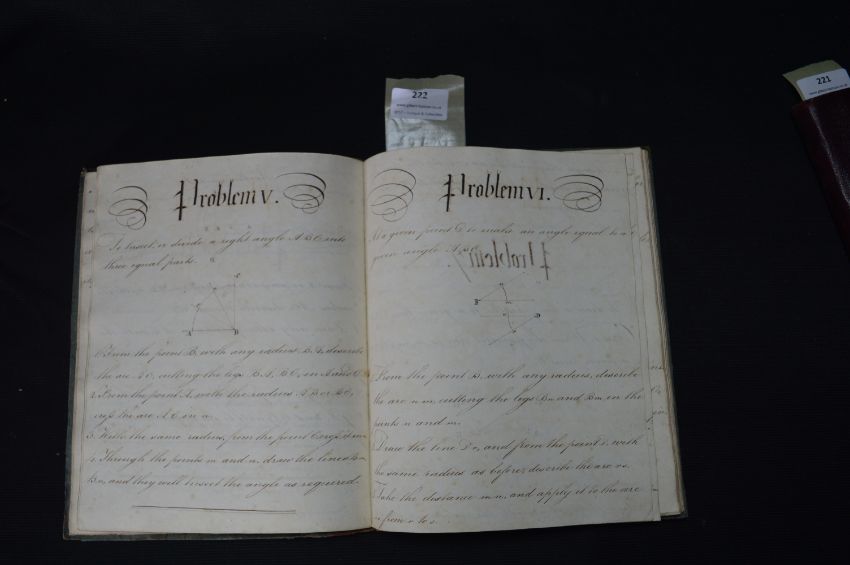 222
221
Problem V.
To trisect or divide a right angle A B C into
three equal parts.
A
B
C
1. From the point B, with any radius B A, describe
the arc A C, cutting the legs B A, B C, in A and C
2. From the point A, with the radius A B or B C,
cross the arc A C in n.
3. With the same radius, from the point C cross it in m
4. Through the points m and n, draw the lines B m
B n, and they will trisect the angle as required.
Problem VI.
At a given point D to make an angle equal to a
given angle A B C
Problem
B
D
From the point B, with any radius, describe
the arc n m, cutting the legs B n and B m, in the
points n and m.
Draw the line D r, and from the point D, with
the same radius as before, describe the arc r s.
Take the distance m n, and apply it to the arc
from r to s.